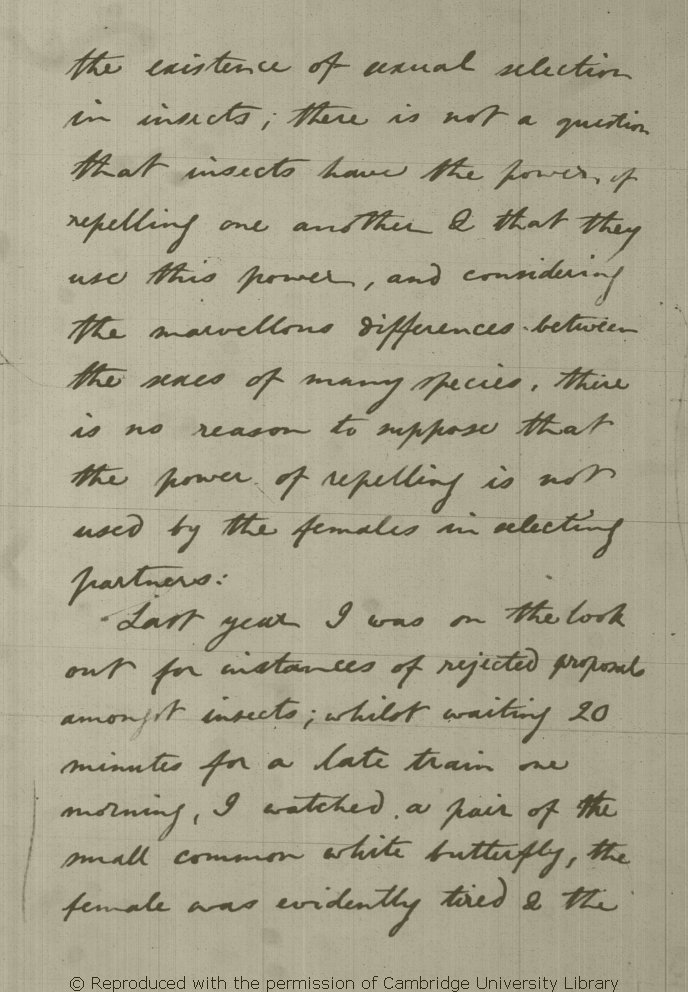 the existence of sexual selection
in insects; there is not a question
that insects have the power of
repelling one another & that they
use this power, and considering
the marvellous differences between
the sexes of many species, there
is no reason to suppose that
the power of repelling is not
used by the females in selecting
partners:
Last year I was on the look
out for instances of rejected proposals
amongst insects; whilst waiting 20
minutes for a late train one
morning, I watched a pair of the
small common white butterfly, the
female was evidently tired & the
© Reproduced with the permission of Cambridge University Library